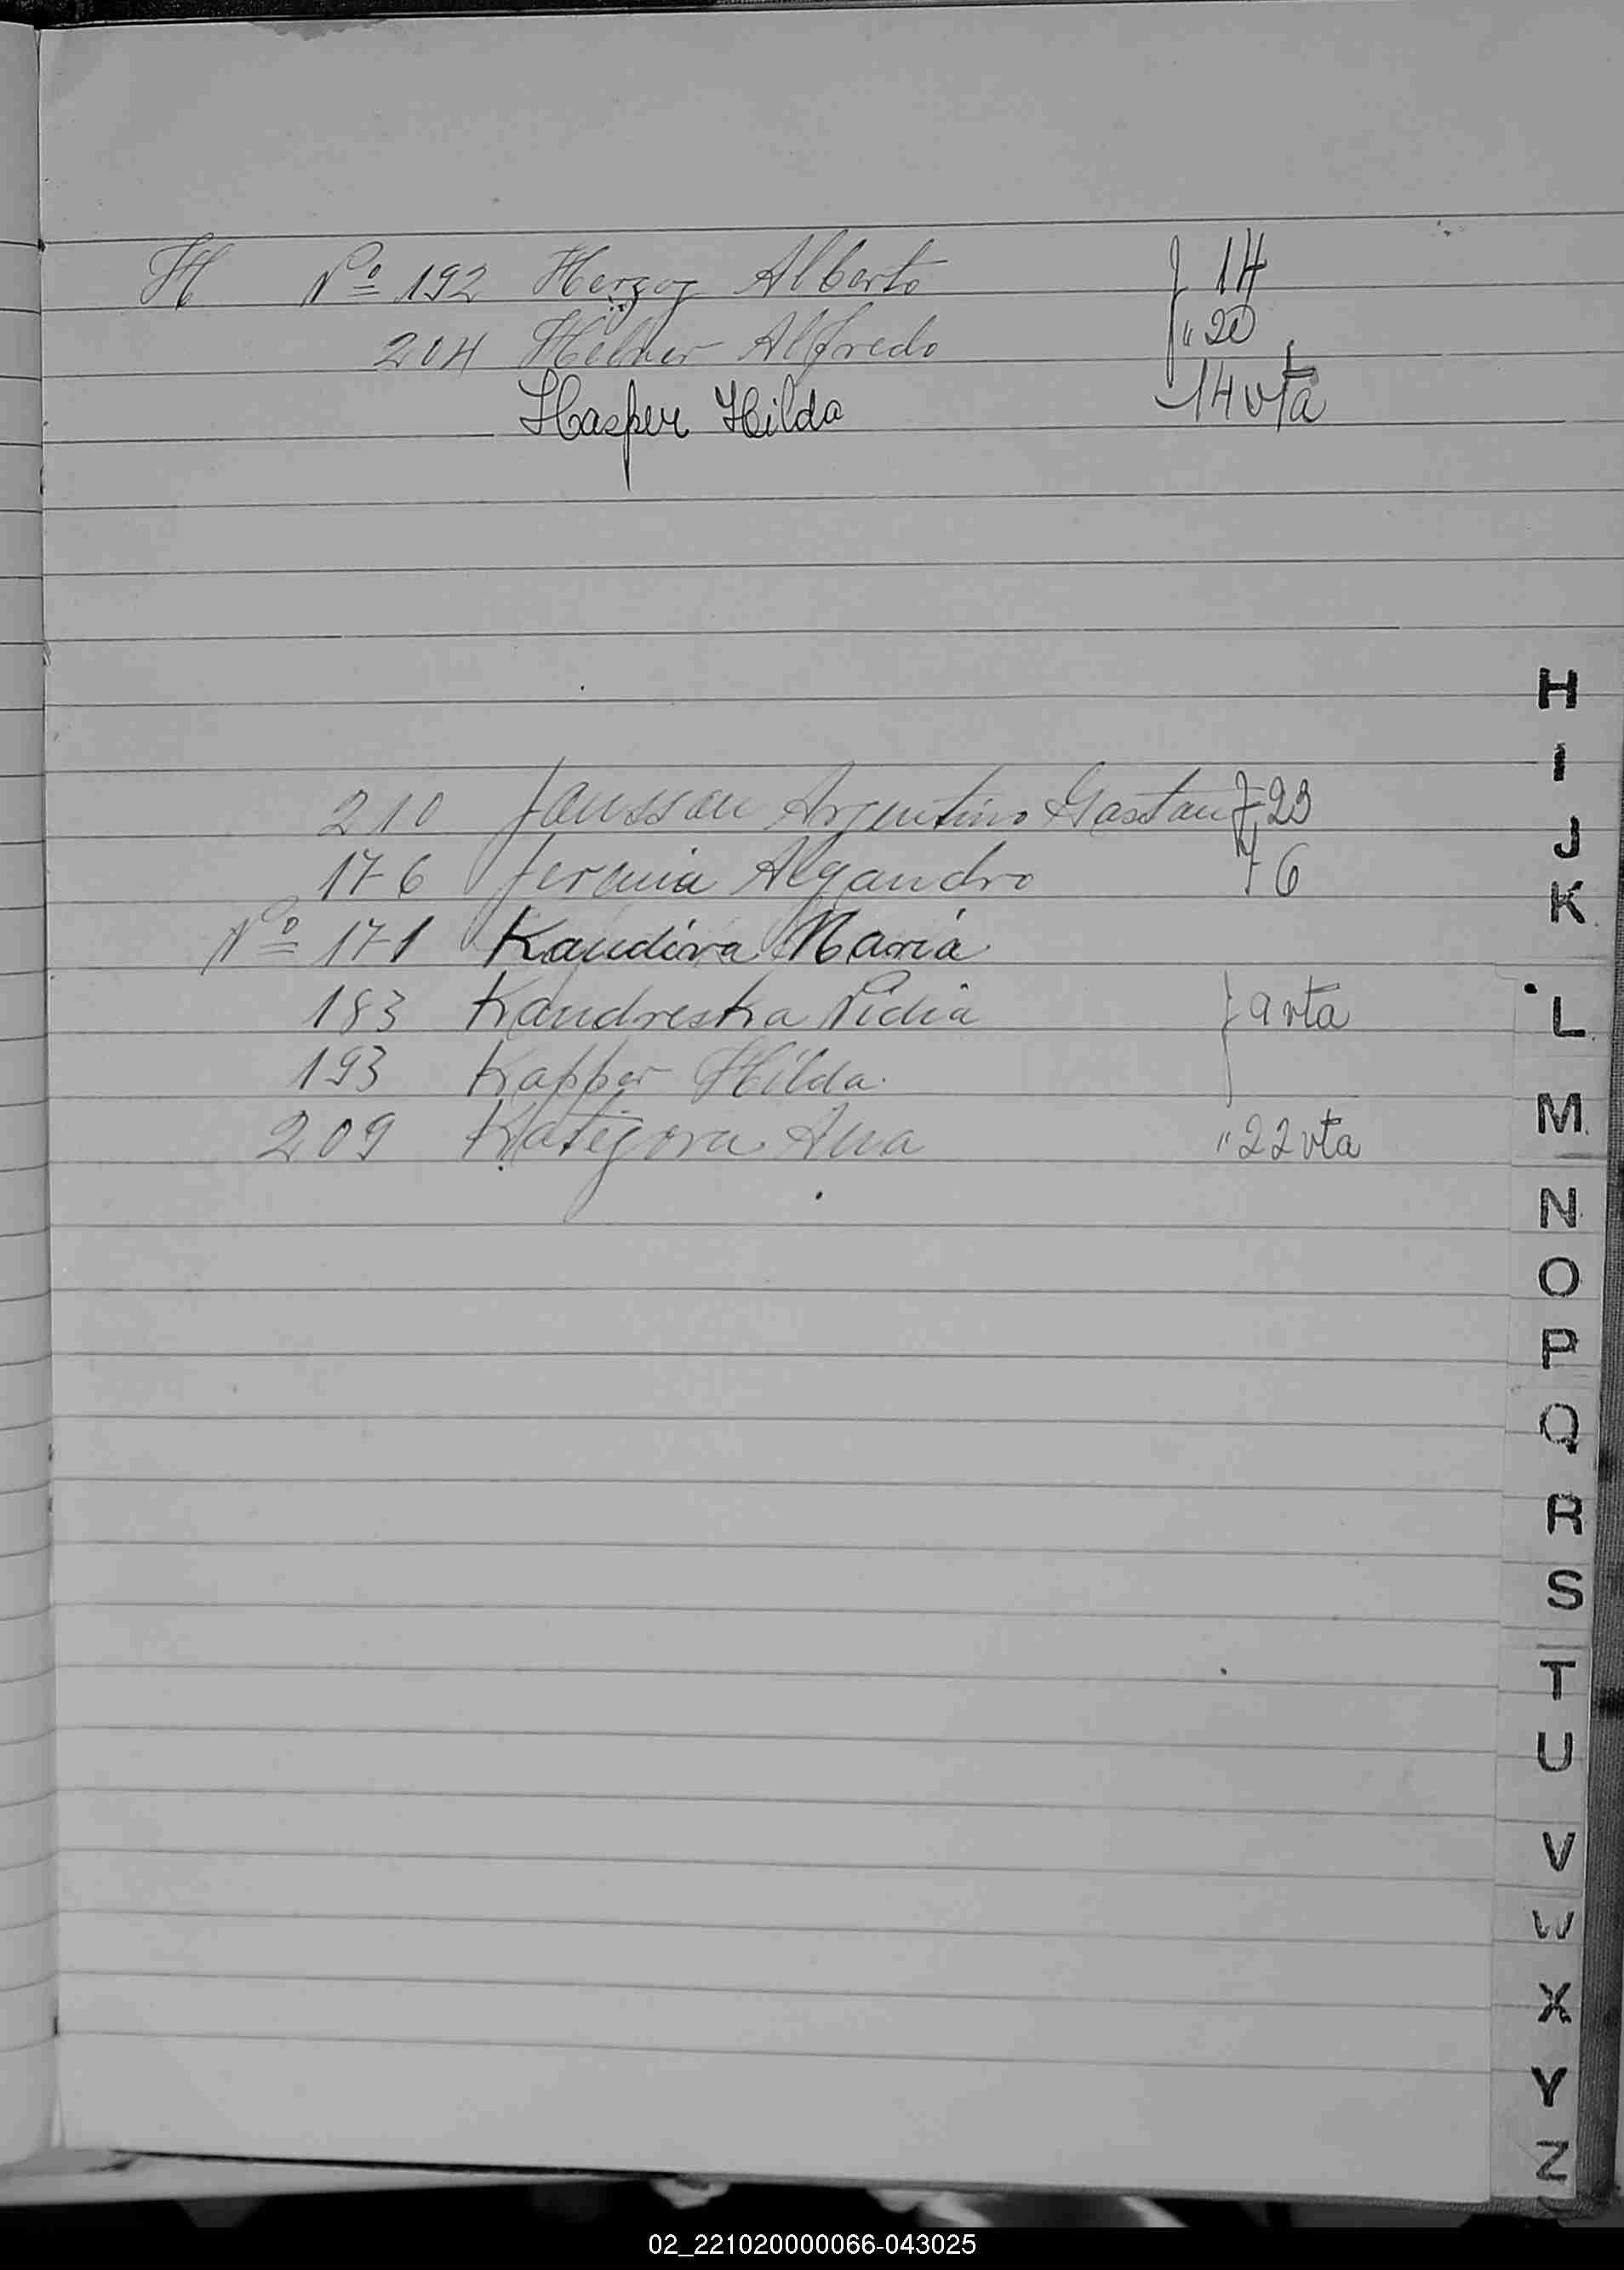 H Nº 192 Herzog Alberto f 14
204 Helner Alfredo " 20
Hasper Hilda 14 vta
H
I
210 Jansson Argentino Gastan f 23
J
176 Jeremia Alejandro f 6
K
Nº 171 Kaudira Maria
183 Kandreska Nidia f 9 vta
L
193 Kapper Hilda
209 Katigora Ana " 22 vta
M
N
O
P
Q
R
S
T
U
V
W
X
Y
Z
02_221020000066-043025